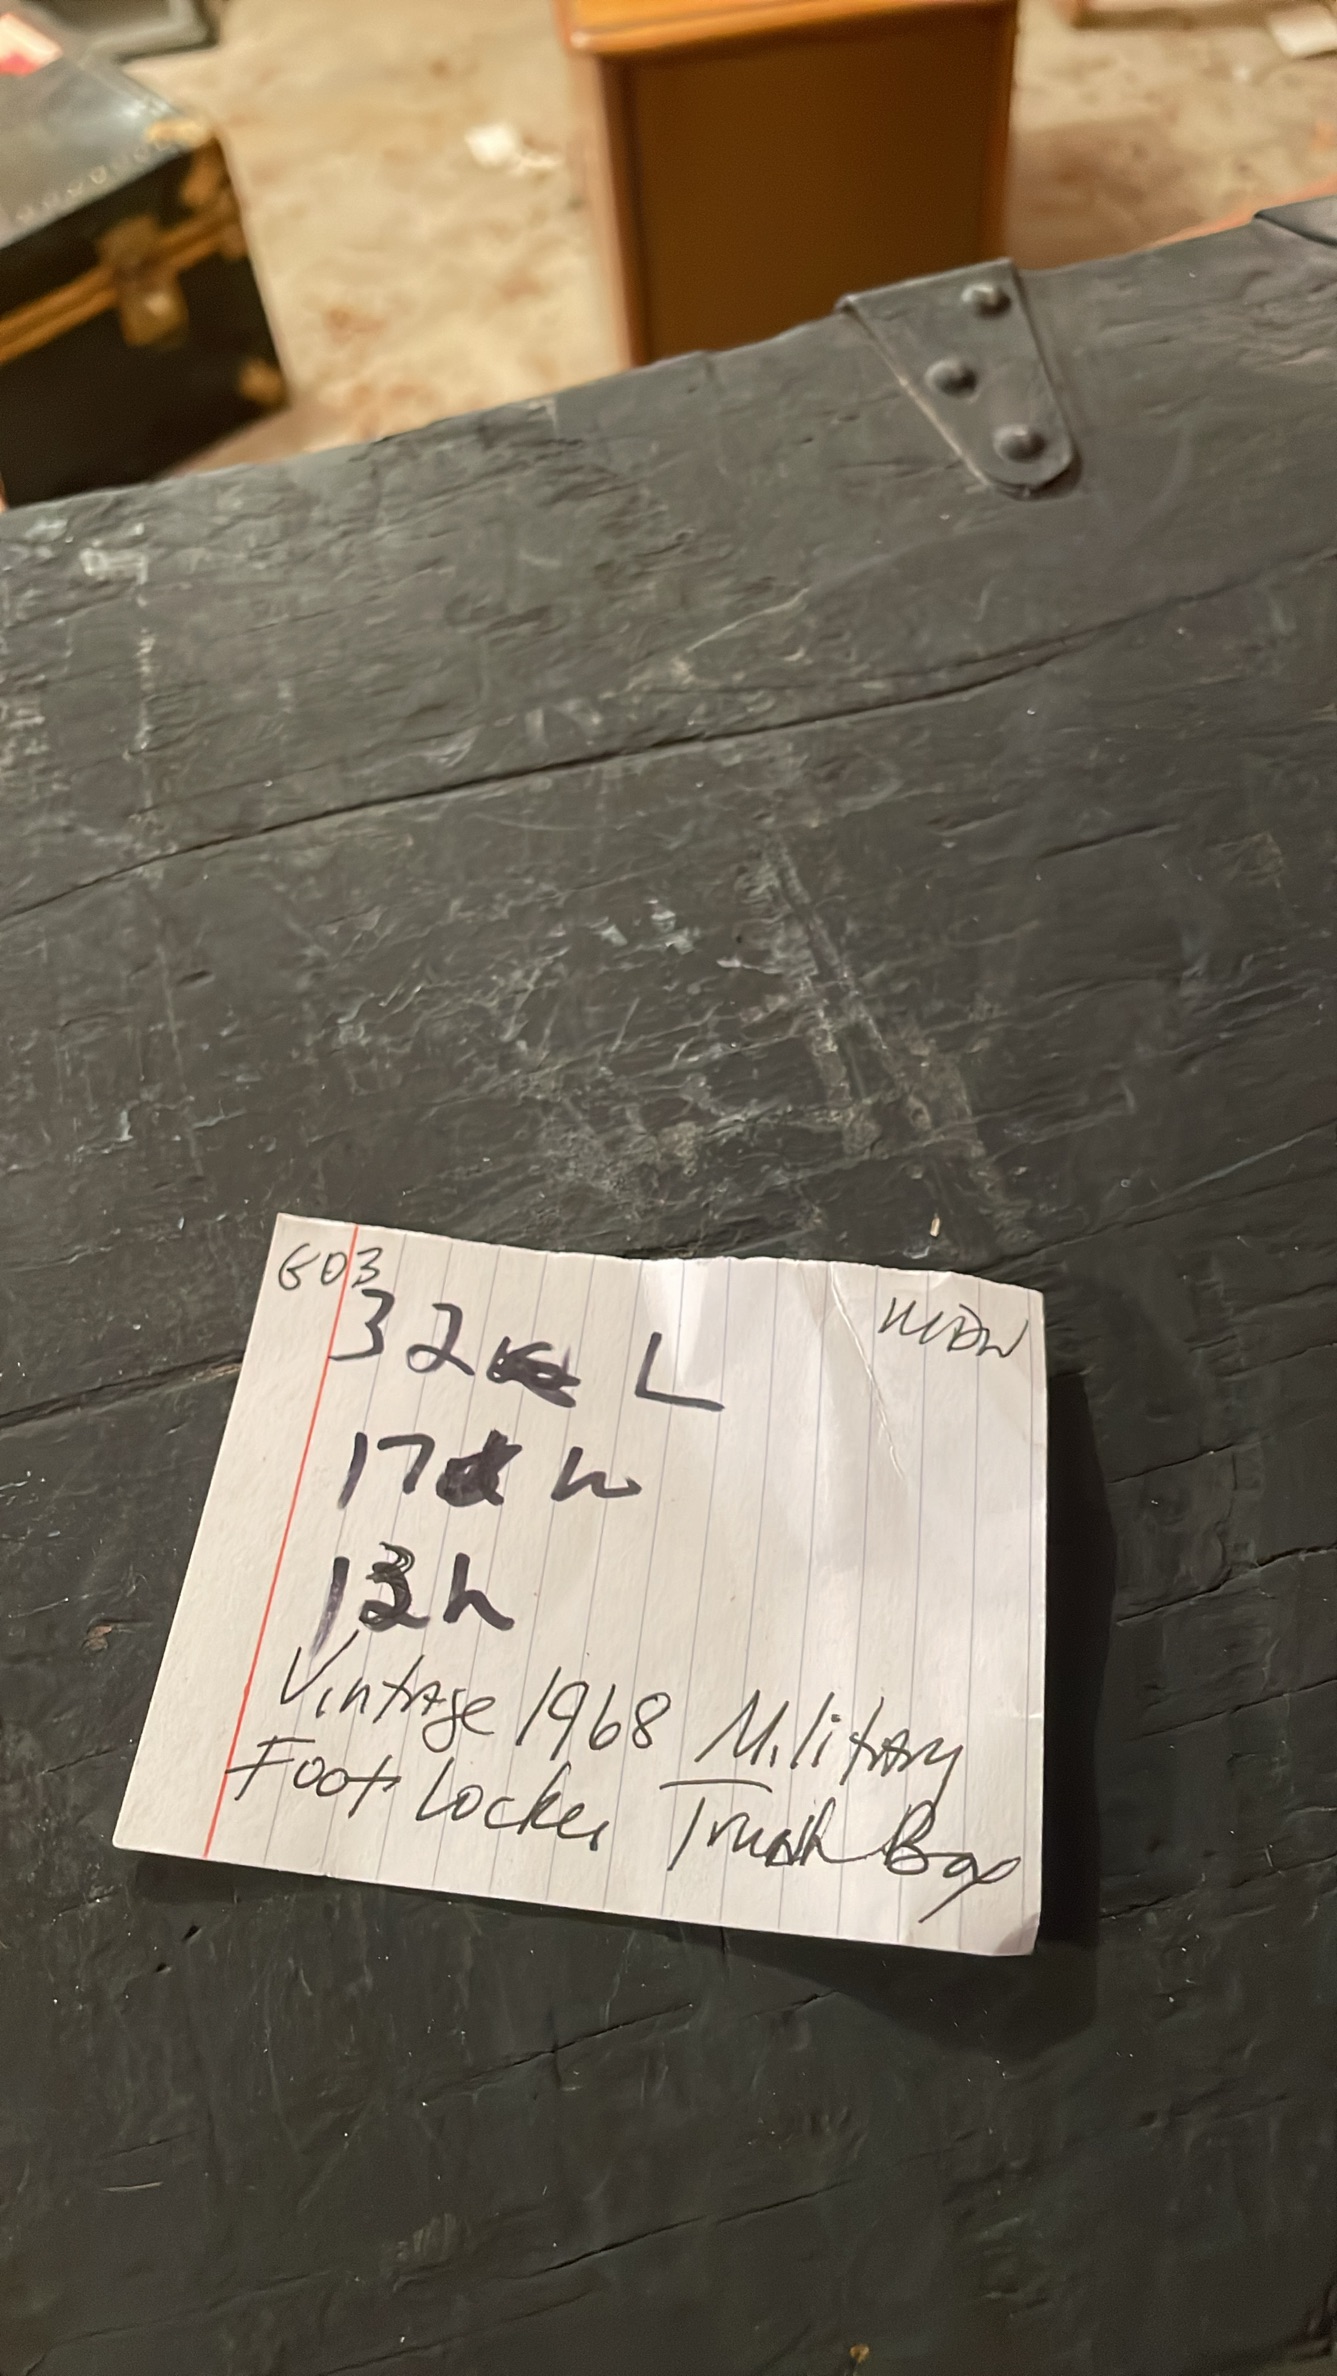 603
32 L
17 W
13 h
Vintage 1968 Military
Foot Locker Trunk Box